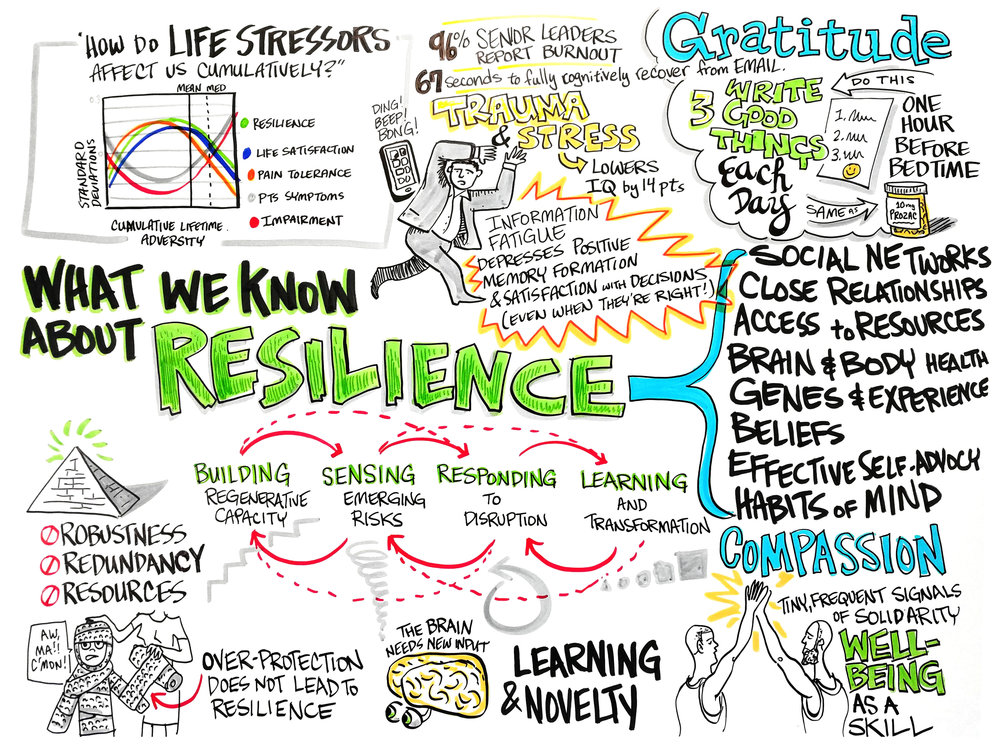 "HOW DO LIFE STRESSORS
AFFECT US CUMULATIVELY?"
MEAN MED
0.3
STANDARD
DEVIATIONS
CUMULATIVE LIFETIME
ADVERSITY
RESILIENCE
LIFE SATISFACTION
PAIN TOLERANCE
PTS SYMPTOMS
IMPAIRMENT
96% SENIOR LEADERS
REPORT BURNOUT
67 seconds to fully cognitively recover from EMAIL.
TRAUMA
& STRESS
LOWERS
IQ by 14 pts
DING!
BEEP!
BONG!
INFORMATION
FATIGUE
DEPRESSES POSITIVE
MEMORY FORMATION
& SATISFACTION WITH DECISIONS
(EVEN WHEN THEY'RE RIGHT!)
Gratitude
3 WRITE
GOOD
THINGS
Each
Day
1.
2.
3.
DO THIS
ONE
HOUR
BEFORE
BEDTIME
SAME AS
10mg
PROZAC
WHAT WE KNOW
ABOUT
RESILIENCE
SOCIAL NETWORKS
CLOSE RELATIONSHIPS
ACCESS to RESOURCES
BRAIN & BODY HEALTH
GENES & EXPERIENCE
BELIEFS
EFFECTIVE SELF-ADVOCY
HABITS OF MIND
BUILDING
REGENERATIVE
CAPACITY
SENSING
EMERGING
RISKS
RESPONDING
TO
DISRUPTION
LEARNING
AND
TRANSFORMATION
ROBUSTNESS
REDUNDANCY
RESOURCES
AW,
MA!!
C'MON!
OVER-PROTECTION
DOES NOT LEAD TO
RESILIENCE
THE BRAIN
NEEDS NEW INPUT
LEARNING
& NOVELTY
COMPASSION
TINY, FREQUENT SIGNALS
OF SOLIDARITY
WELL-
BEING
AS A
SKILL